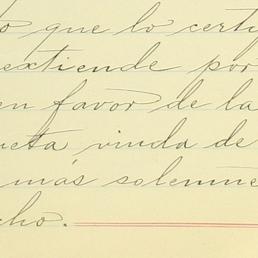 o que lo certi
extiende por
en favor de la
ueta viuda de
más solemne
cho.